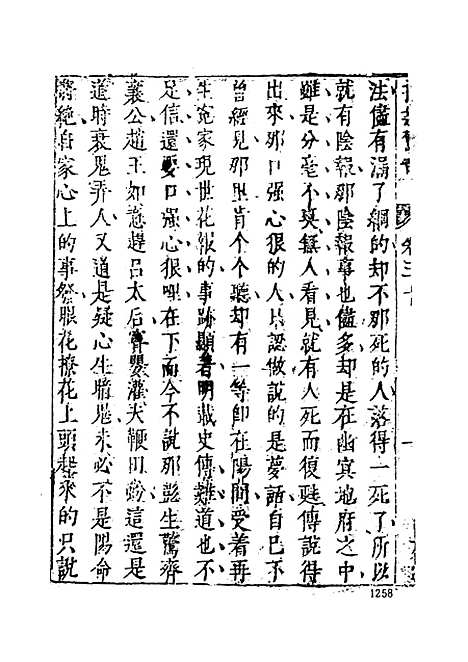 注儘有漏了網的却不那死的人落得一死了所以
就有陰報那陰報事也儘多却是在幽冥地府之中
雖是分毫不爽無人看見就有人死而復甦傳說得
出來那口强心狠的人只認做說的是夢話自己不
曾經見那里肯个个聽却有一等即在陽間受着再
生冤家現世花報的事跡顯著明載史傳難道也不
足信還要口强心狠哩在下而今不說那彭生驚齊
襄公趙王如意趕呂太后竇嬰灌夫鞭田蚡這還是
道時衰鬼弄人又道是疑心生暗鬼未必不是陽命
將絕自家心上的事發眼花撩花上頭起來的只說
卷三十
1258